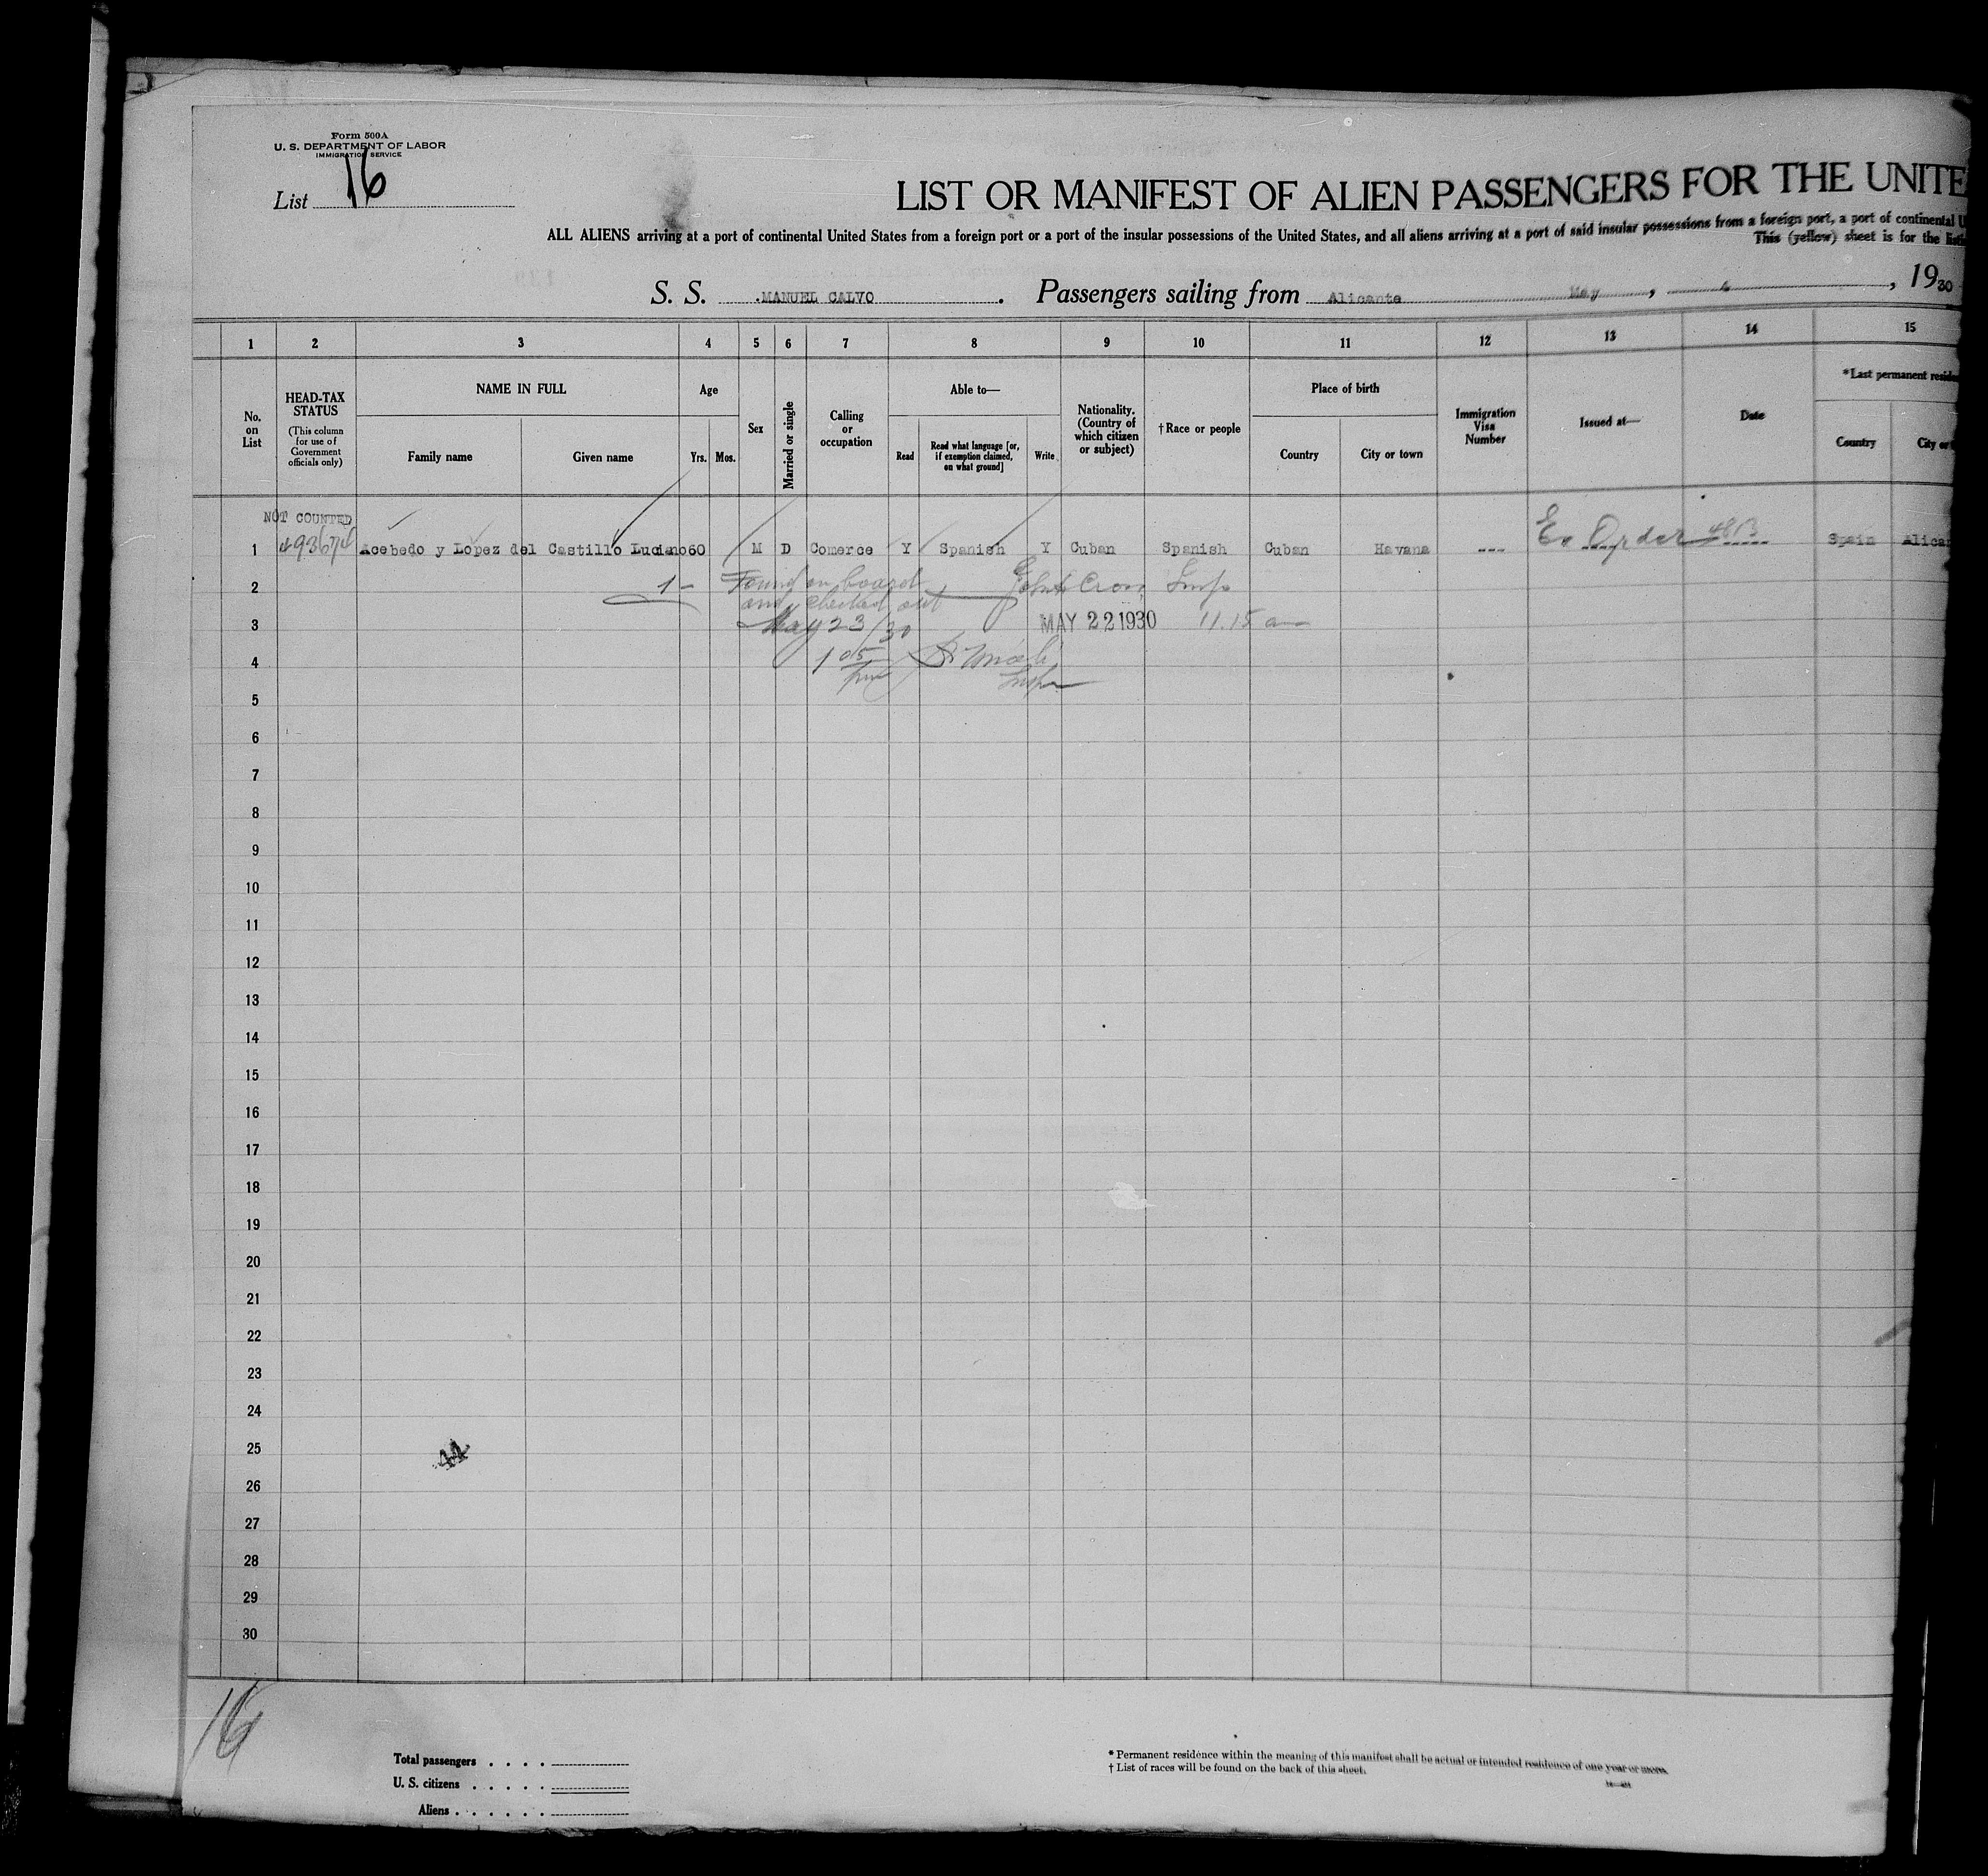 Form 500A
U. S. DEPARTMENT OF LABOR
IMMIGRATION SERVICE
List 16
LIST OR MANIFEST OF ALIEN PASSENGERS FOR THE UNITE
ALL ALIENS arriving at a port of continental United States from a foreign port or a port of the insular possessions of the United States, and all aliens arriving at a port of said insular possessions from a foreign port, a port of continental U
This (yellow) sheet is for the listi
S. S. MANUEL CALVO. Passengers sailing from Alicante May , 1930
1 2 3 4 5 6 7 8 9 10 11 12 13 14 15
No. on List
HEAD-TAX STATUS
(This column for use of Government officials only)
NAME IN FULL
Family name
Given name
Age
Yrs. Mos.
Sex
Married or single
Calling or occupation
Able to—
Read
Read what language [or, if exemption claimed, on what ground]
Write
Nationality. (Country of which citizen or subject)
† Race or people
Place of birth
Country
City or town
Immigration Visa Number
Issued at—
Date
*Last permanent reside
Country
City or
NOT COUNTED
1 Acebedo y López del Castillo Luciano 60 M D Comerce Y Spanish Y Cuban Spanish Cuban Havana --- Ex Order Spain Alican
2 1 - Found on board John Insp
and checked out
3 May 23/30 MAY 22 1930 11.15 am
4 1 05 pm Insp
5
6
7
8
9
10
11
12
13
14
15
16
17
18
19
20
21
22
23
24
25 44
26
27
28
29
30
16
Total passengers . . . .
U. S. citizens . . . . .
Aliens . . . . . .
* Permanent residence within the meaning of this manifest shall be actual or intended residence of one year or more.
† List of races will be found on the back of this sheet.